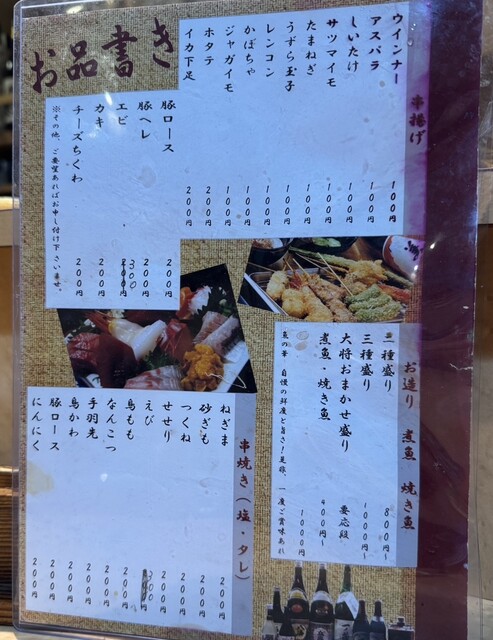 お品書き
串揚げ
ウインナー 100円
アスパラ 100円
しいたけ 100円
サツマイモ 100円
たまねぎ 100円
うずら玉子 100円
レンコン 100円
かぼちゃ 100円
ジャガイモ 100円
ホタテ 200円
イカ下足 200円
豚ロース 200円
豚ヘレ 200円
エビ 300
カキ 200円
チーズちくわ 200円
※その他、ご要望あればお申し付け下さいませ。
お造り 煮魚 焼き魚
二種盛り 800円~
三種盛り 1000円~
大将おまかせ盛り 要応段
煮魚・焼き魚 400円~
1000円
魚の華 自慢の鮮度と旨さ!是非、一度ご賞味あれ
串焼き(塩・タレ)
ねぎま 200円
砂ぎも 200円
つくね 200円
せせり 200円
えび 300円
鳥もも 200円
なんこつ 200円
手羽先 200円
鳥かわ 200円
豚ロース 200円
にんにく 200円